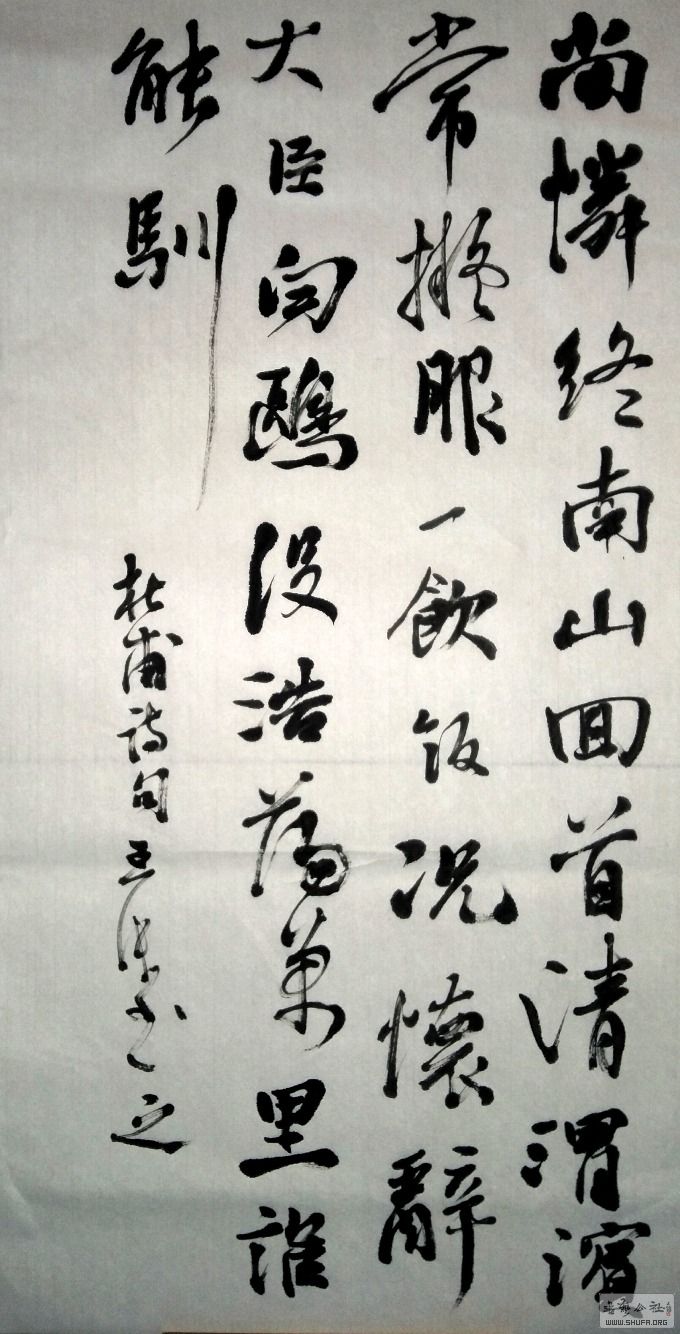 尚憐終南山回首清渭濱
常擬眼一飲飯況懷辭
大臣白鷗没浩蕩萬里誰
能馴
杜甫詩句王书之
書藝公社
WWW.SHUFA.ORG